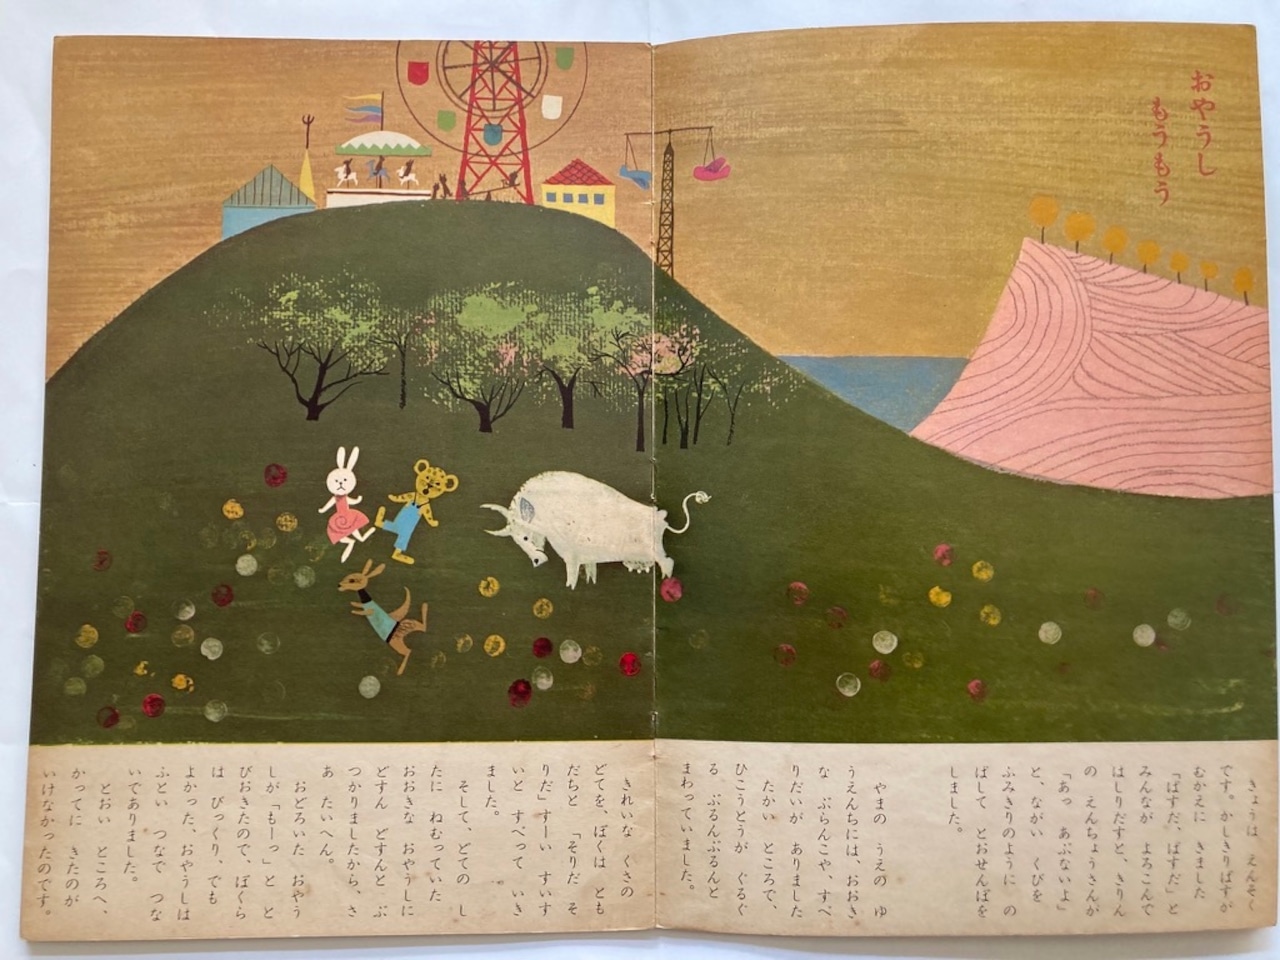 おやうし
もうもう
きょうは　えんそく
です。かしきりばすが
むかえに　きました
「ばすだ、ばすだ」と
みんなが　よろこんで
はしりだすと、きりん
の　えんちょうさんが
「あっ　あぶないよ」
と、ながい　くびを
ふみきりのように　の
ばして　とおせんぼを
しました。
やまの　うえの　ゆ
うえんちには、おおき
な　ぶらんこや、すべ
りだいが　ありました
たかい　ところで、
ひこうとうが　ぐるぐ
る　ぶるんぶるんと
まわっていました。
きれいな　くさの
どてを、ぼくは　とも
だちと　「そりだ　そ
りだ」すーい　すいす
いと　すべって　いき
ました。
そして、どての　し
たに　ねむっていた
おおきな　おやうしに
どすん　どすんと　ぶ
つかりましたから、さ
あ　たいへん。
おどろいた　おやう
しが「もーっ」と　と
びおきたので、ぼくら
は　びっくり、でも
よかった、おやうしは
ふとい　つなで　つな
いでありました。
とおい　ところへ、
かってに　きたのが
いけなかったのです。